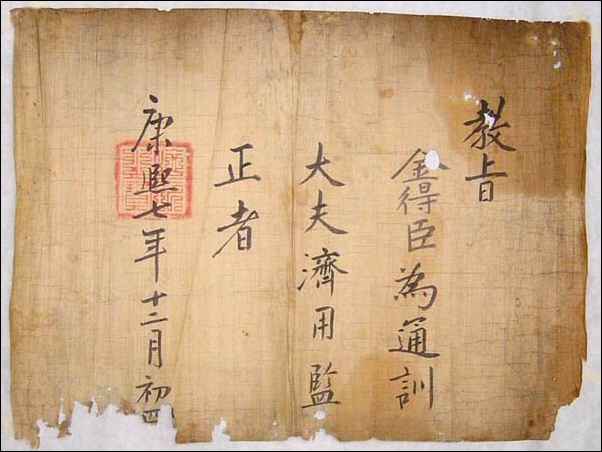 教旨
金得臣為通訓
大夫濟用監
正者
康熙七年十二月初四